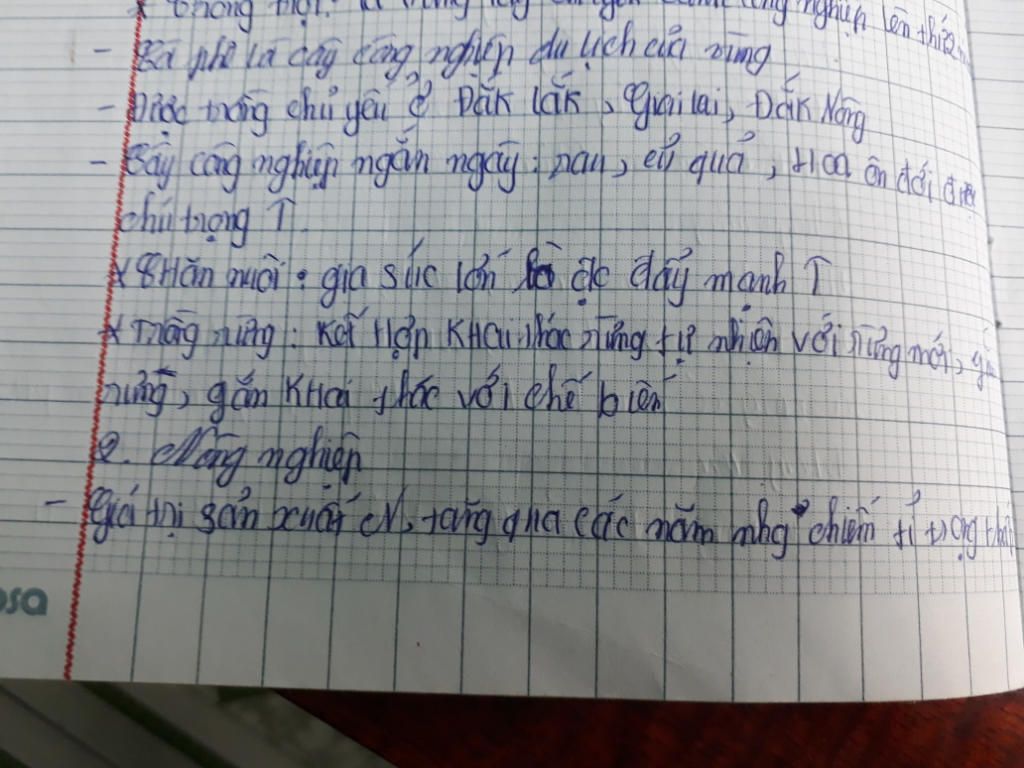 * trồng trọt: là vùng công nghiệp lớn thứ
- Cà phê là cây công nghiệp du lịch của vùng
- Được trồng chủ yếu ở Đắk Lắk, Giai lai, Đắk Nông
- Cây công nghiệp ngắn ngày: rau, củ quả, Hoa ôn đới được
chú trọng T
* CHăn nuôi: gia súc lớn đc đẩy mạnh T
* Trồng rừng: Kết Hợp KHai thác rừng tự nhiên với rừng mới,
rừng, gắn KHai thác với chế biến
2. Công nghiệp
- Giá trị sản xuất CN, tăng qua các năm nhg chiếm tỉ trọng thấp
osa